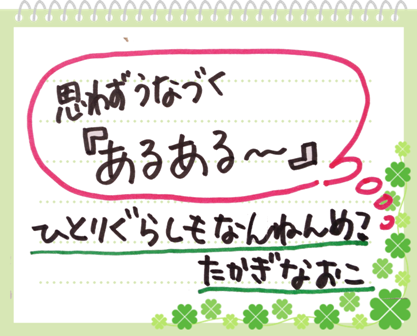 思わずうなづく
『あるある〜』
ひとりぐらしもなんねんめ?
たかぎなおこ